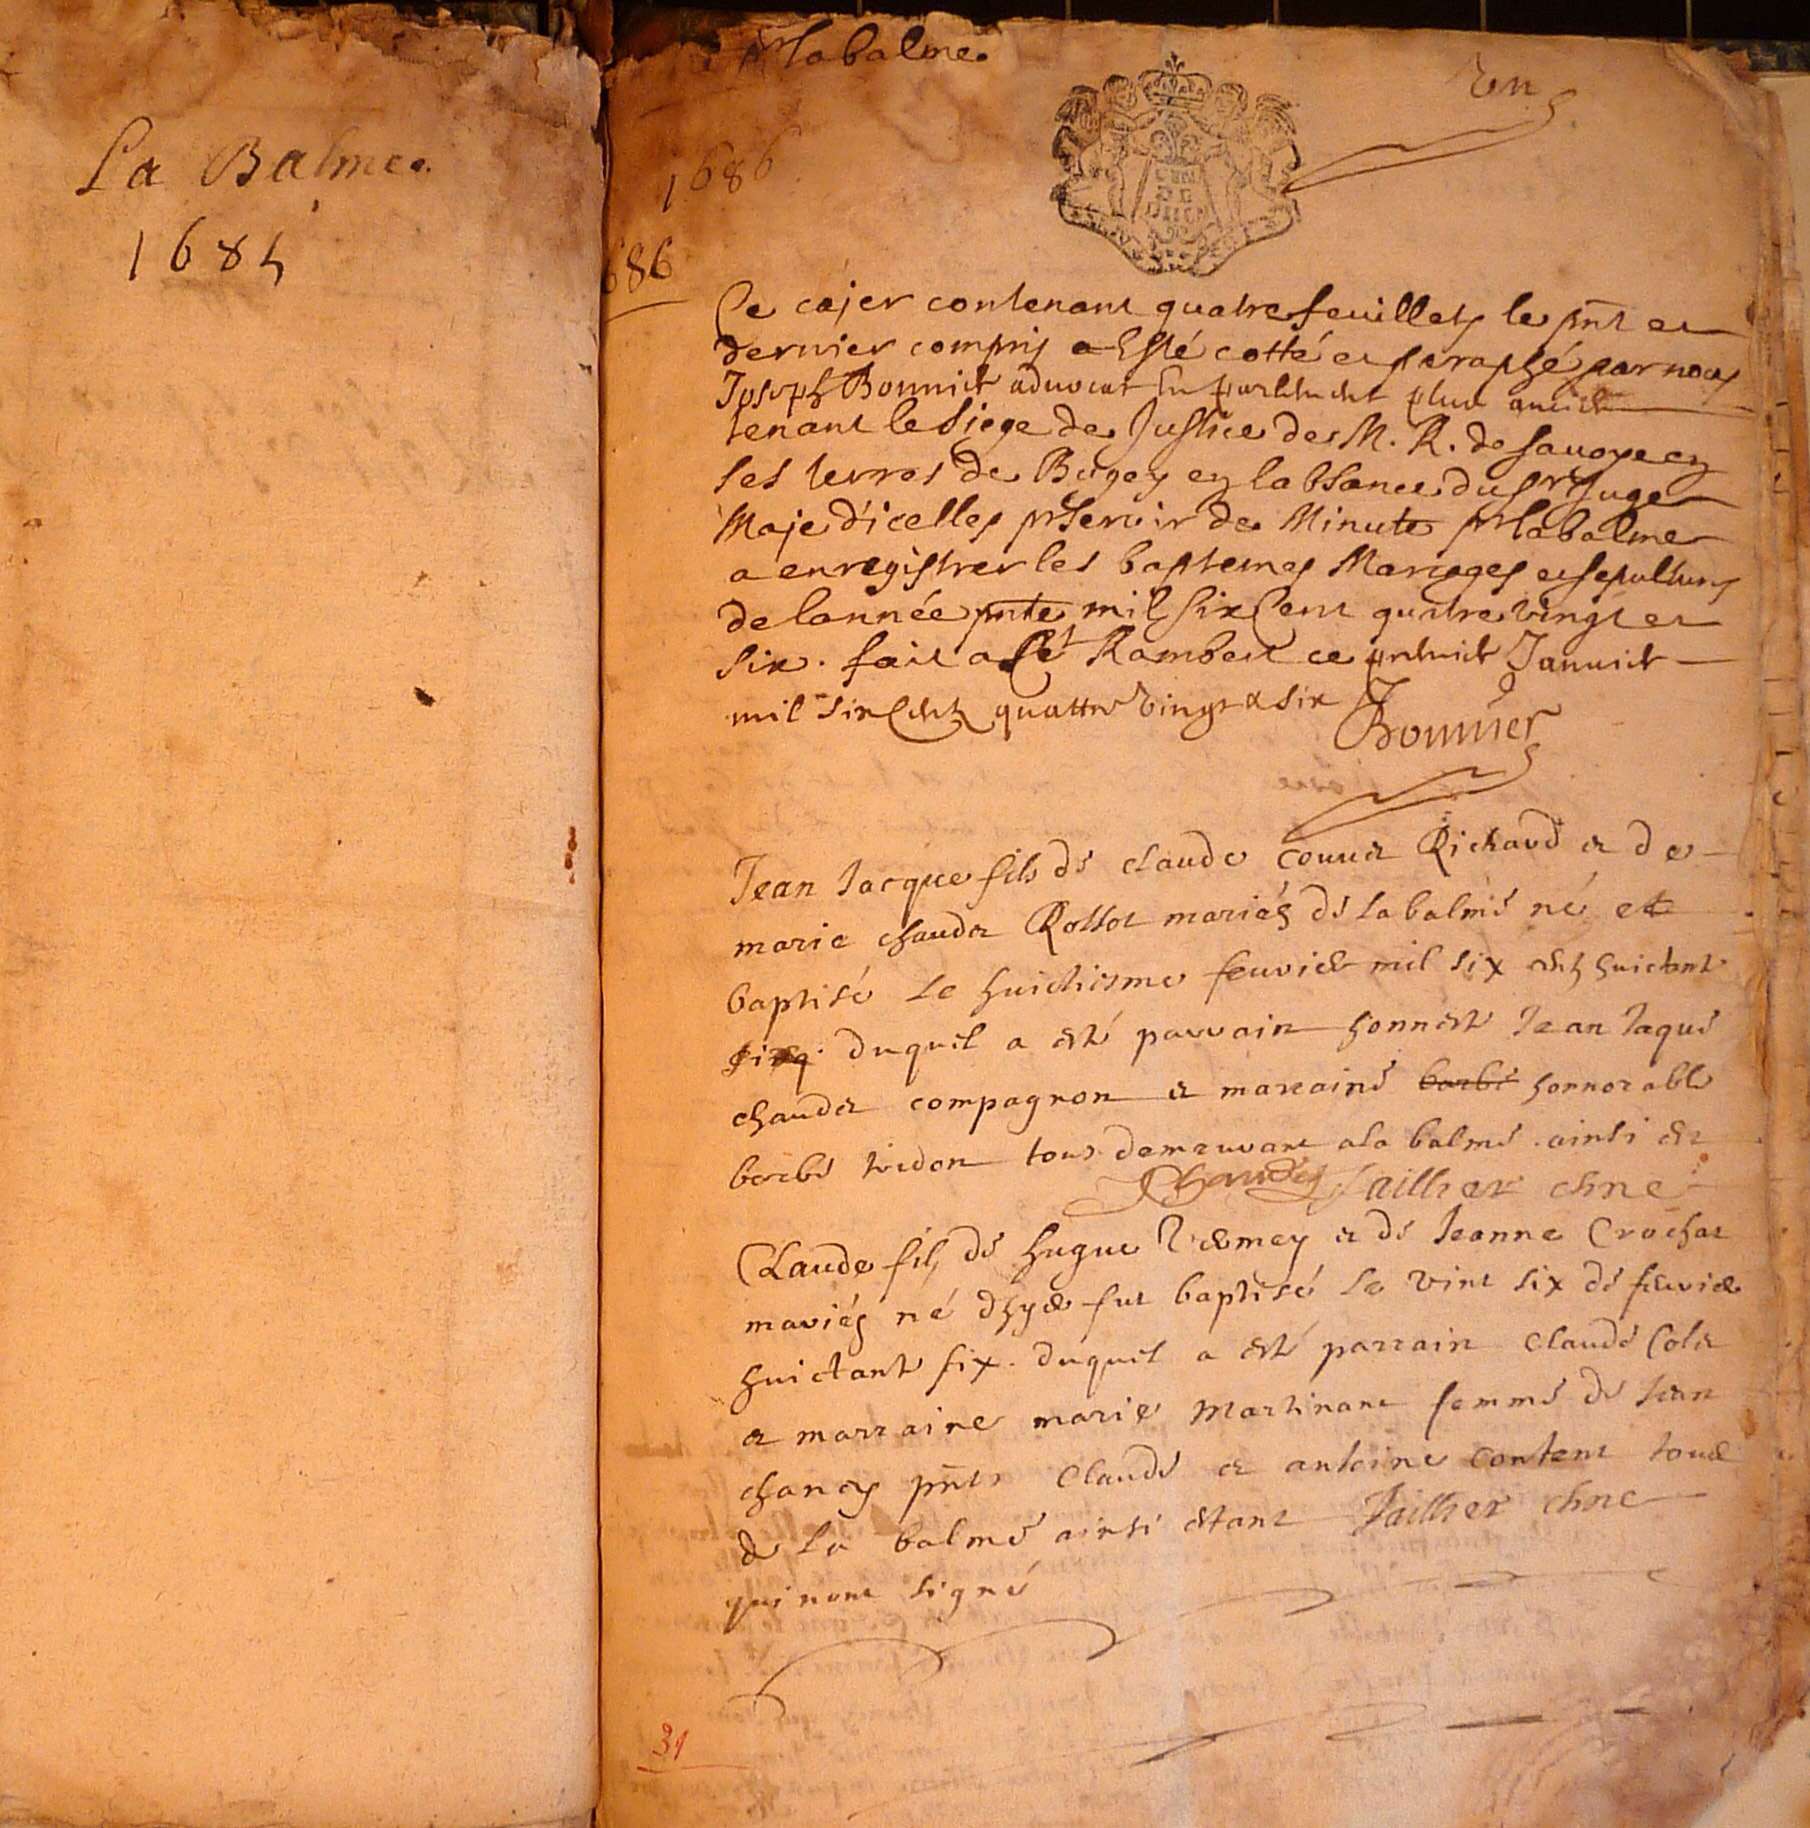 La Balme.
1684
pr labalme.
Un
1686
686
Ce cajer contenant quatre feuillets le pnt et
dernier compris a Esté cotté et paraphé par nous
Joseph Bonnier advocat En parlement plus ancien
tenant le Siege de Justice de M. R. de Savoye en
ses terres de Bugey en labsance du sr Juge
Maje d'icelles pr servir de Minute pr labalme
a enregistrer les baptemes Mariages et sepultures
de lannée pnte mil six Cent quatre vingt et
six. fait a St Rambert ce Janvier
mil six Centz quattre vingt & six
Bonnier
Jean Jacque fils de claude Richard et de
marie chaudet Rosset mariés de la balme né et
baptisé le huictiesme feuvier mil six centz huictante
duquel a esté parrain honneste Jean Jaque
chaudet compagnon et marraine barbe honnorable
barbe tous demeurant a la balme ainsi est
Chaudet Jaillier chne
Claude fils de hugue et de Jeanne Crochat
mariés né dhyer fut baptisé le vint six de feuvier
huictante six. duquel a esté parrain claude Colet
et marraine marie Martinant femme de Jean
pnts Claude et antoine content tous
de La balme ainsi estant Jaillier chne
qui nont signé
31